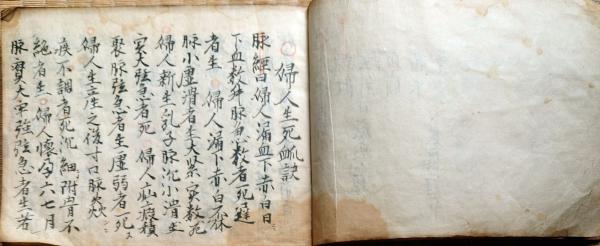 婦人生死脉訣
脉經曰婦人漏血下赤白日
下血数升脉急数者死遲
者生 婦人漏下赤白不
脉小虛滑者生大緊実数死
婦人新生乳子脉沉小滑生
実大弦急者死 婦人疝瘕積
聚脉弦急者生虛弱者死
婦人生産之後寸口脉焱
疾不調者死沉細附骨不
絶者生 婦人懷孕六七月
脉實大牢強弦急者生若